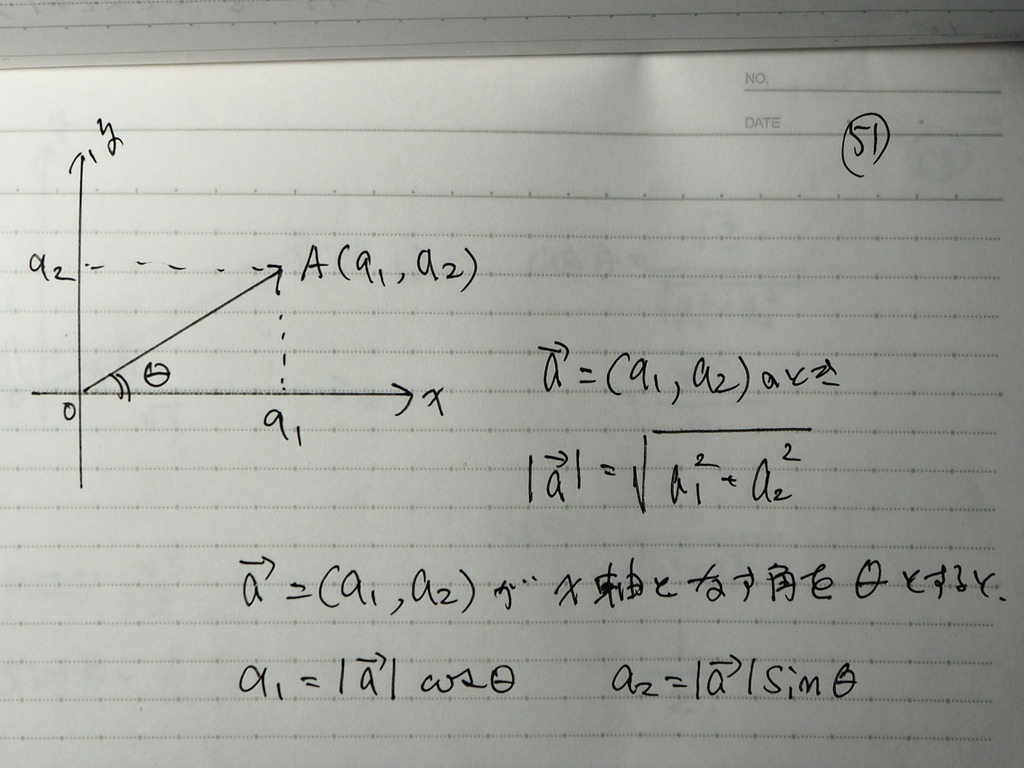 NO.
DATE
51
y
a₂
A(a₁, a₂)
θ
0
a₁
x
a⃗ = (a₁, a₂) のとき
|a⃗| = √(a₁² + a₂²)
a⃗ = (a₁, a₂) が x軸となす角を θ とすると.
a₁ = |a⃗| cosθ a₂ = |a⃗| sinθ